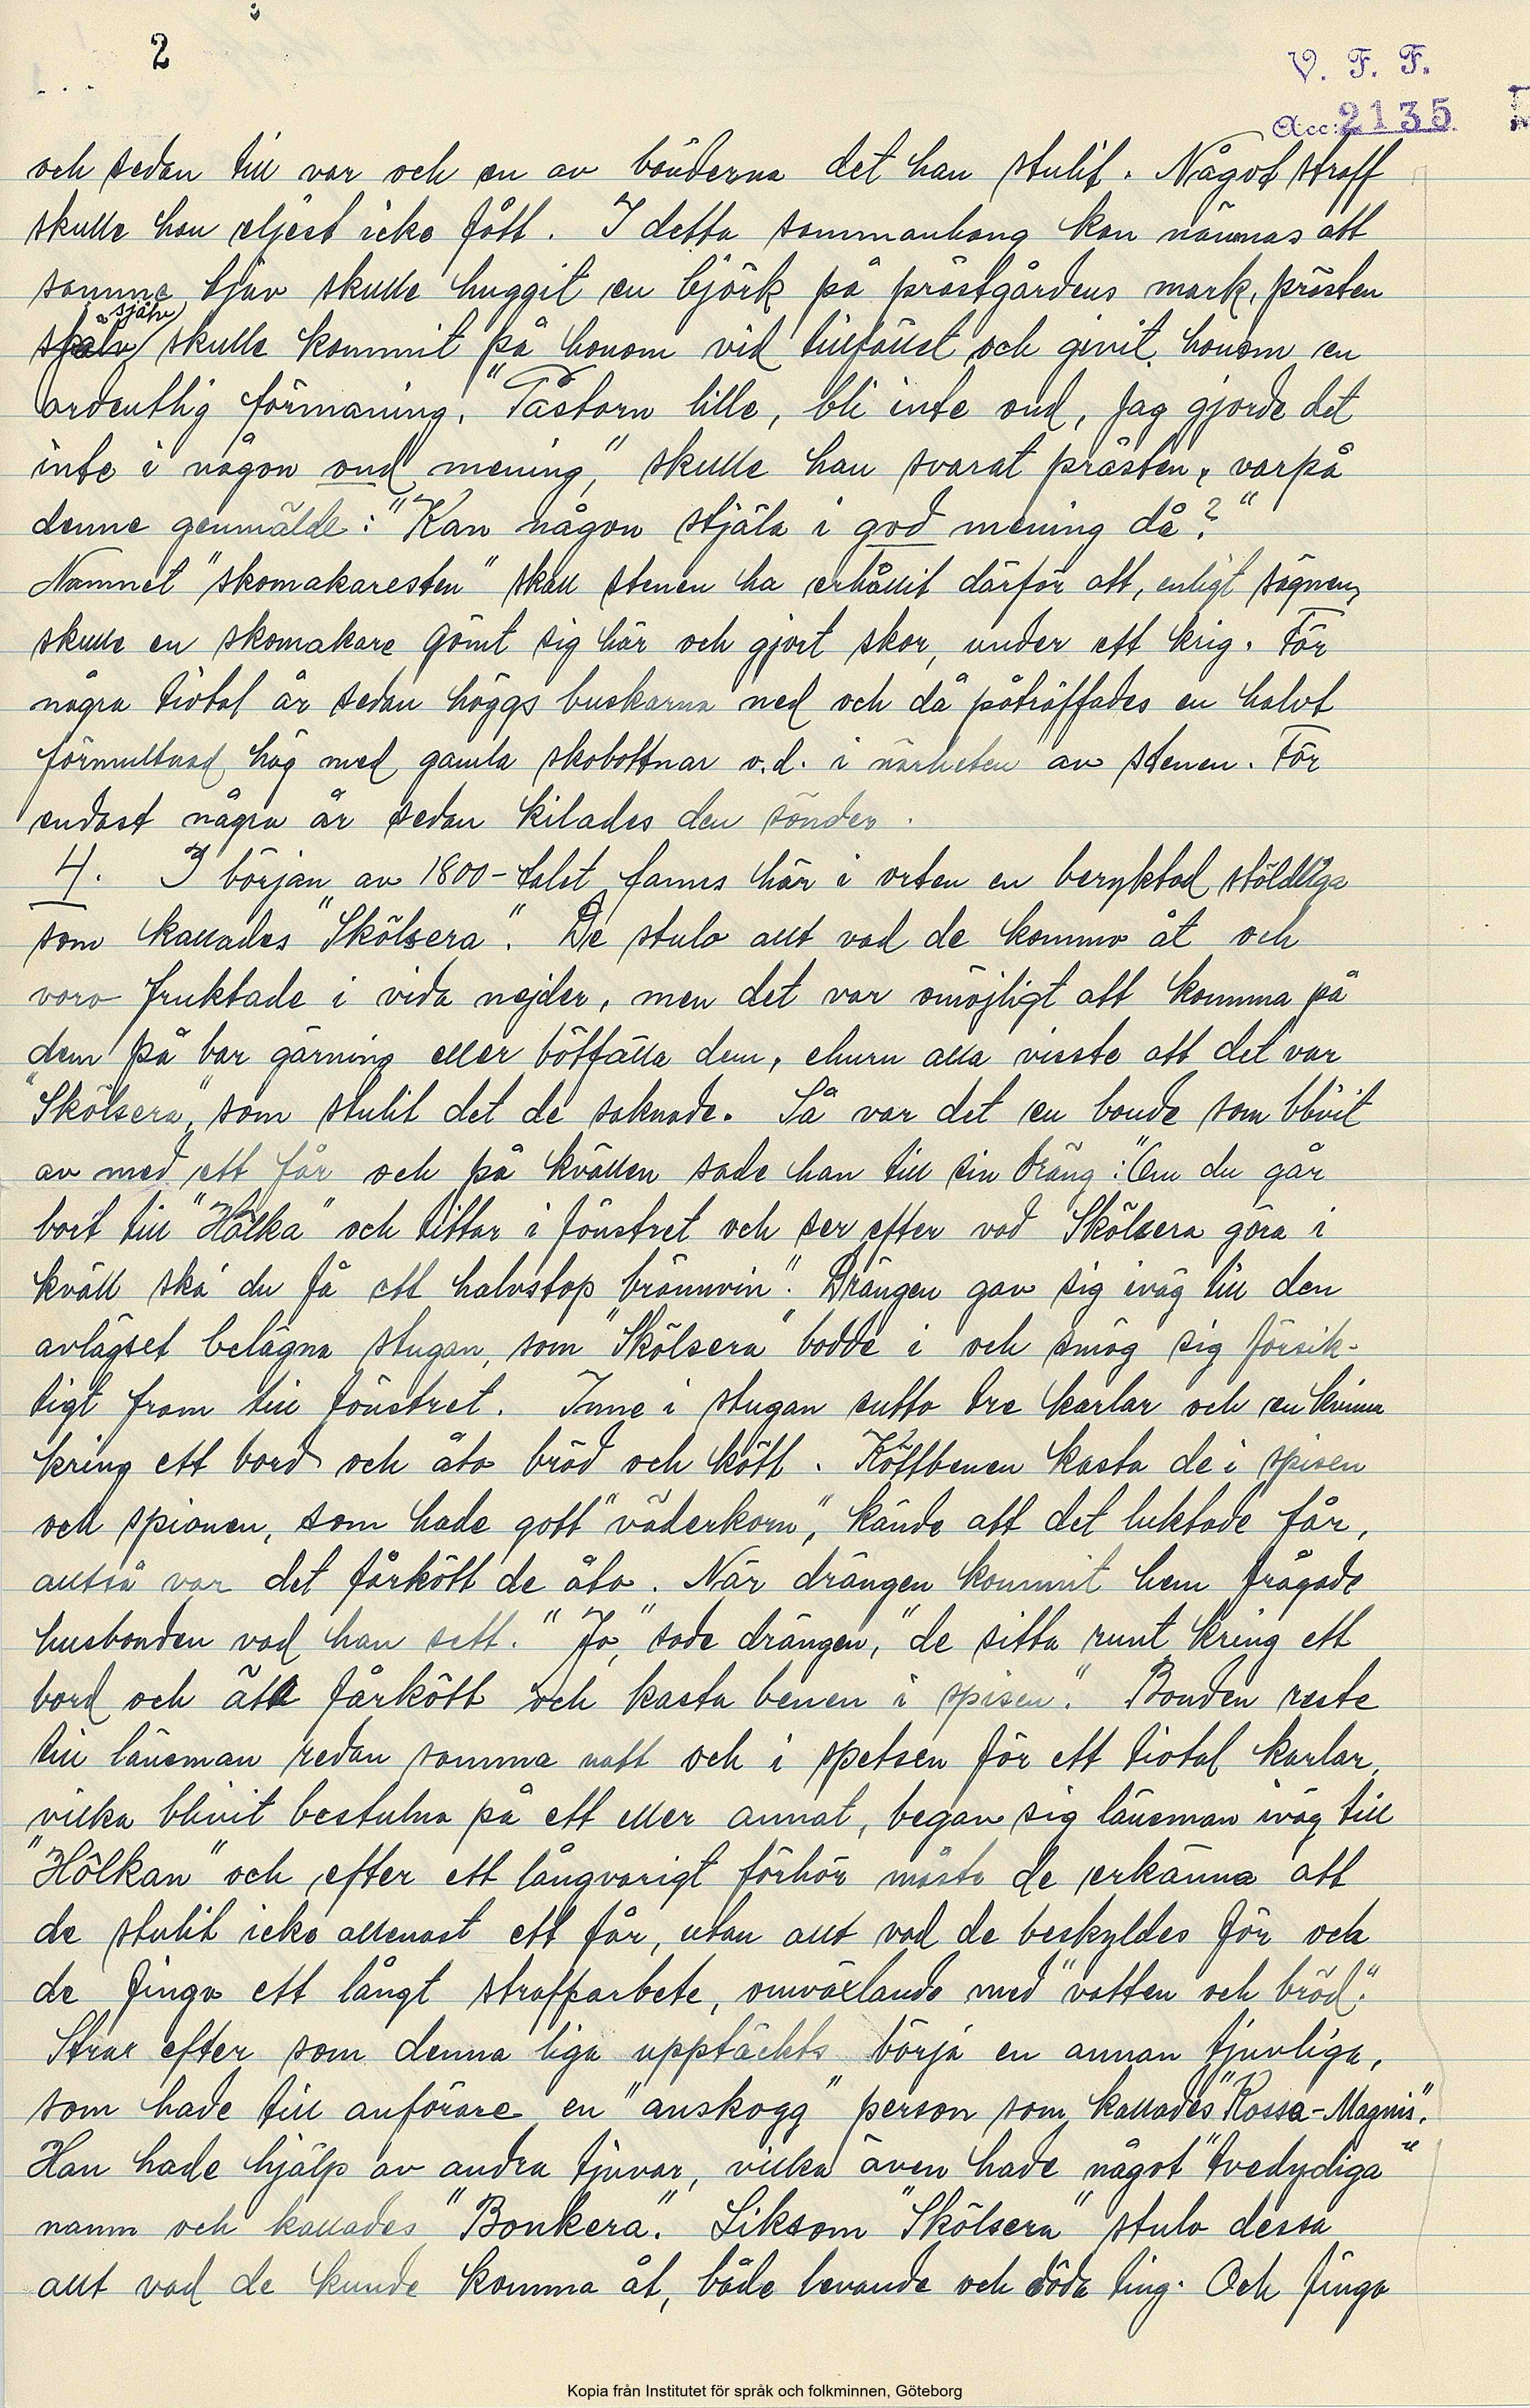 2
V. F. F.
Acc: 2135
och sedan till var och en av bönderna det han stulit. Något straff
skulle han eljest icke fått. I detta sammanhang kan nämnas att
samme tjuv skulle huggit en björk på prästgårdens mark, prästen
själv skulle kommit på honom vid tillfället och givit honom en
ordentlig förmaning. "Pastorn lille, bli inte ond, jag gjorde det
inte i någon ond mening," skulle han svarat prästen, varpå
denne genmälde: "Kan någon stjäla i god mening då?"
Namnet "skomakaresten" skall stenen ha erhållit därför att, enligt sägnen,
skulle en skomakare gömt sig här och gjort skor, under ett krig. För
några tiotal år sedan höggs buskarna ned och då påträffades en halvt
förmultnad hög med gamla skobottnar o.d. i närheten av stenen. För
endast några år sedan kilades den sönder.
4. I början av 1800-talet fanns här i orten en beryktad stöldliga
som kallades "Skölsera". De stulo allt vad de kommo åt och
voro fruktade i vida nejder, men det var omöjligt att komma på
dem på bar gärning eller bötfälla dem, ehuru alla visste att det var
"Skölsera", som stulit det de saknade. Så var det en bonde som blivit
av med ett får och på kvällen sade han till sin dräng: "Om du går
bort till "Hölka" och tittar i fönstret och ser efter vad Skölsera göra i
kväll ska' du få ett halvstop brännvin". Drängen gav sig iväg till den
avlägset belägna stugan, som "Skölsera" bodde i och smög sig försik-
tigt fram till fönstret. Inne i stugan sutto tre karlar och en kvinna
kring ett bord och åto bröd och kött. Köttbenen kasta de i spisen
och spionen, som hade gott "väderkorn", kände att det luktade får,
alltså var det fårkött de åto. När drängen kommit hem frågade
husbonden vad han sett. "Jo," sade drängen, "de sitta runt kring ett
bord och äta fårkött och kasta benen i spisen". Bonden reste
till länsman redan samma natt och i spetsen för ett tiotal karlar,
vilka blivit bestulna på ett eller annat, begav sig länsman iväg till
"Hölkan" och efter ett långvarigt förhör måste de erkänna att
de stulit icke allenast ett får, utan allt vad de beskyldes för och
de fingo ett långt straffarbete, omväxlande med "vatten och bröd".
Strax efter som denna liga upptäckts börja en annan tjuvliga,
som hade till anförare en "anskogg" person som kallades "Rossa-Magnis".
Han hade hjälp av andra tjuvar, vilka även hade något "tvedydiga"
namn och kallades "Bonkera". Liksom "Skölsera" stulo dessa
allt vad de kunde komma åt, både levande och döda ting. Och fingo
Kopia från Institutet för språk och folkminnen, Göteborg